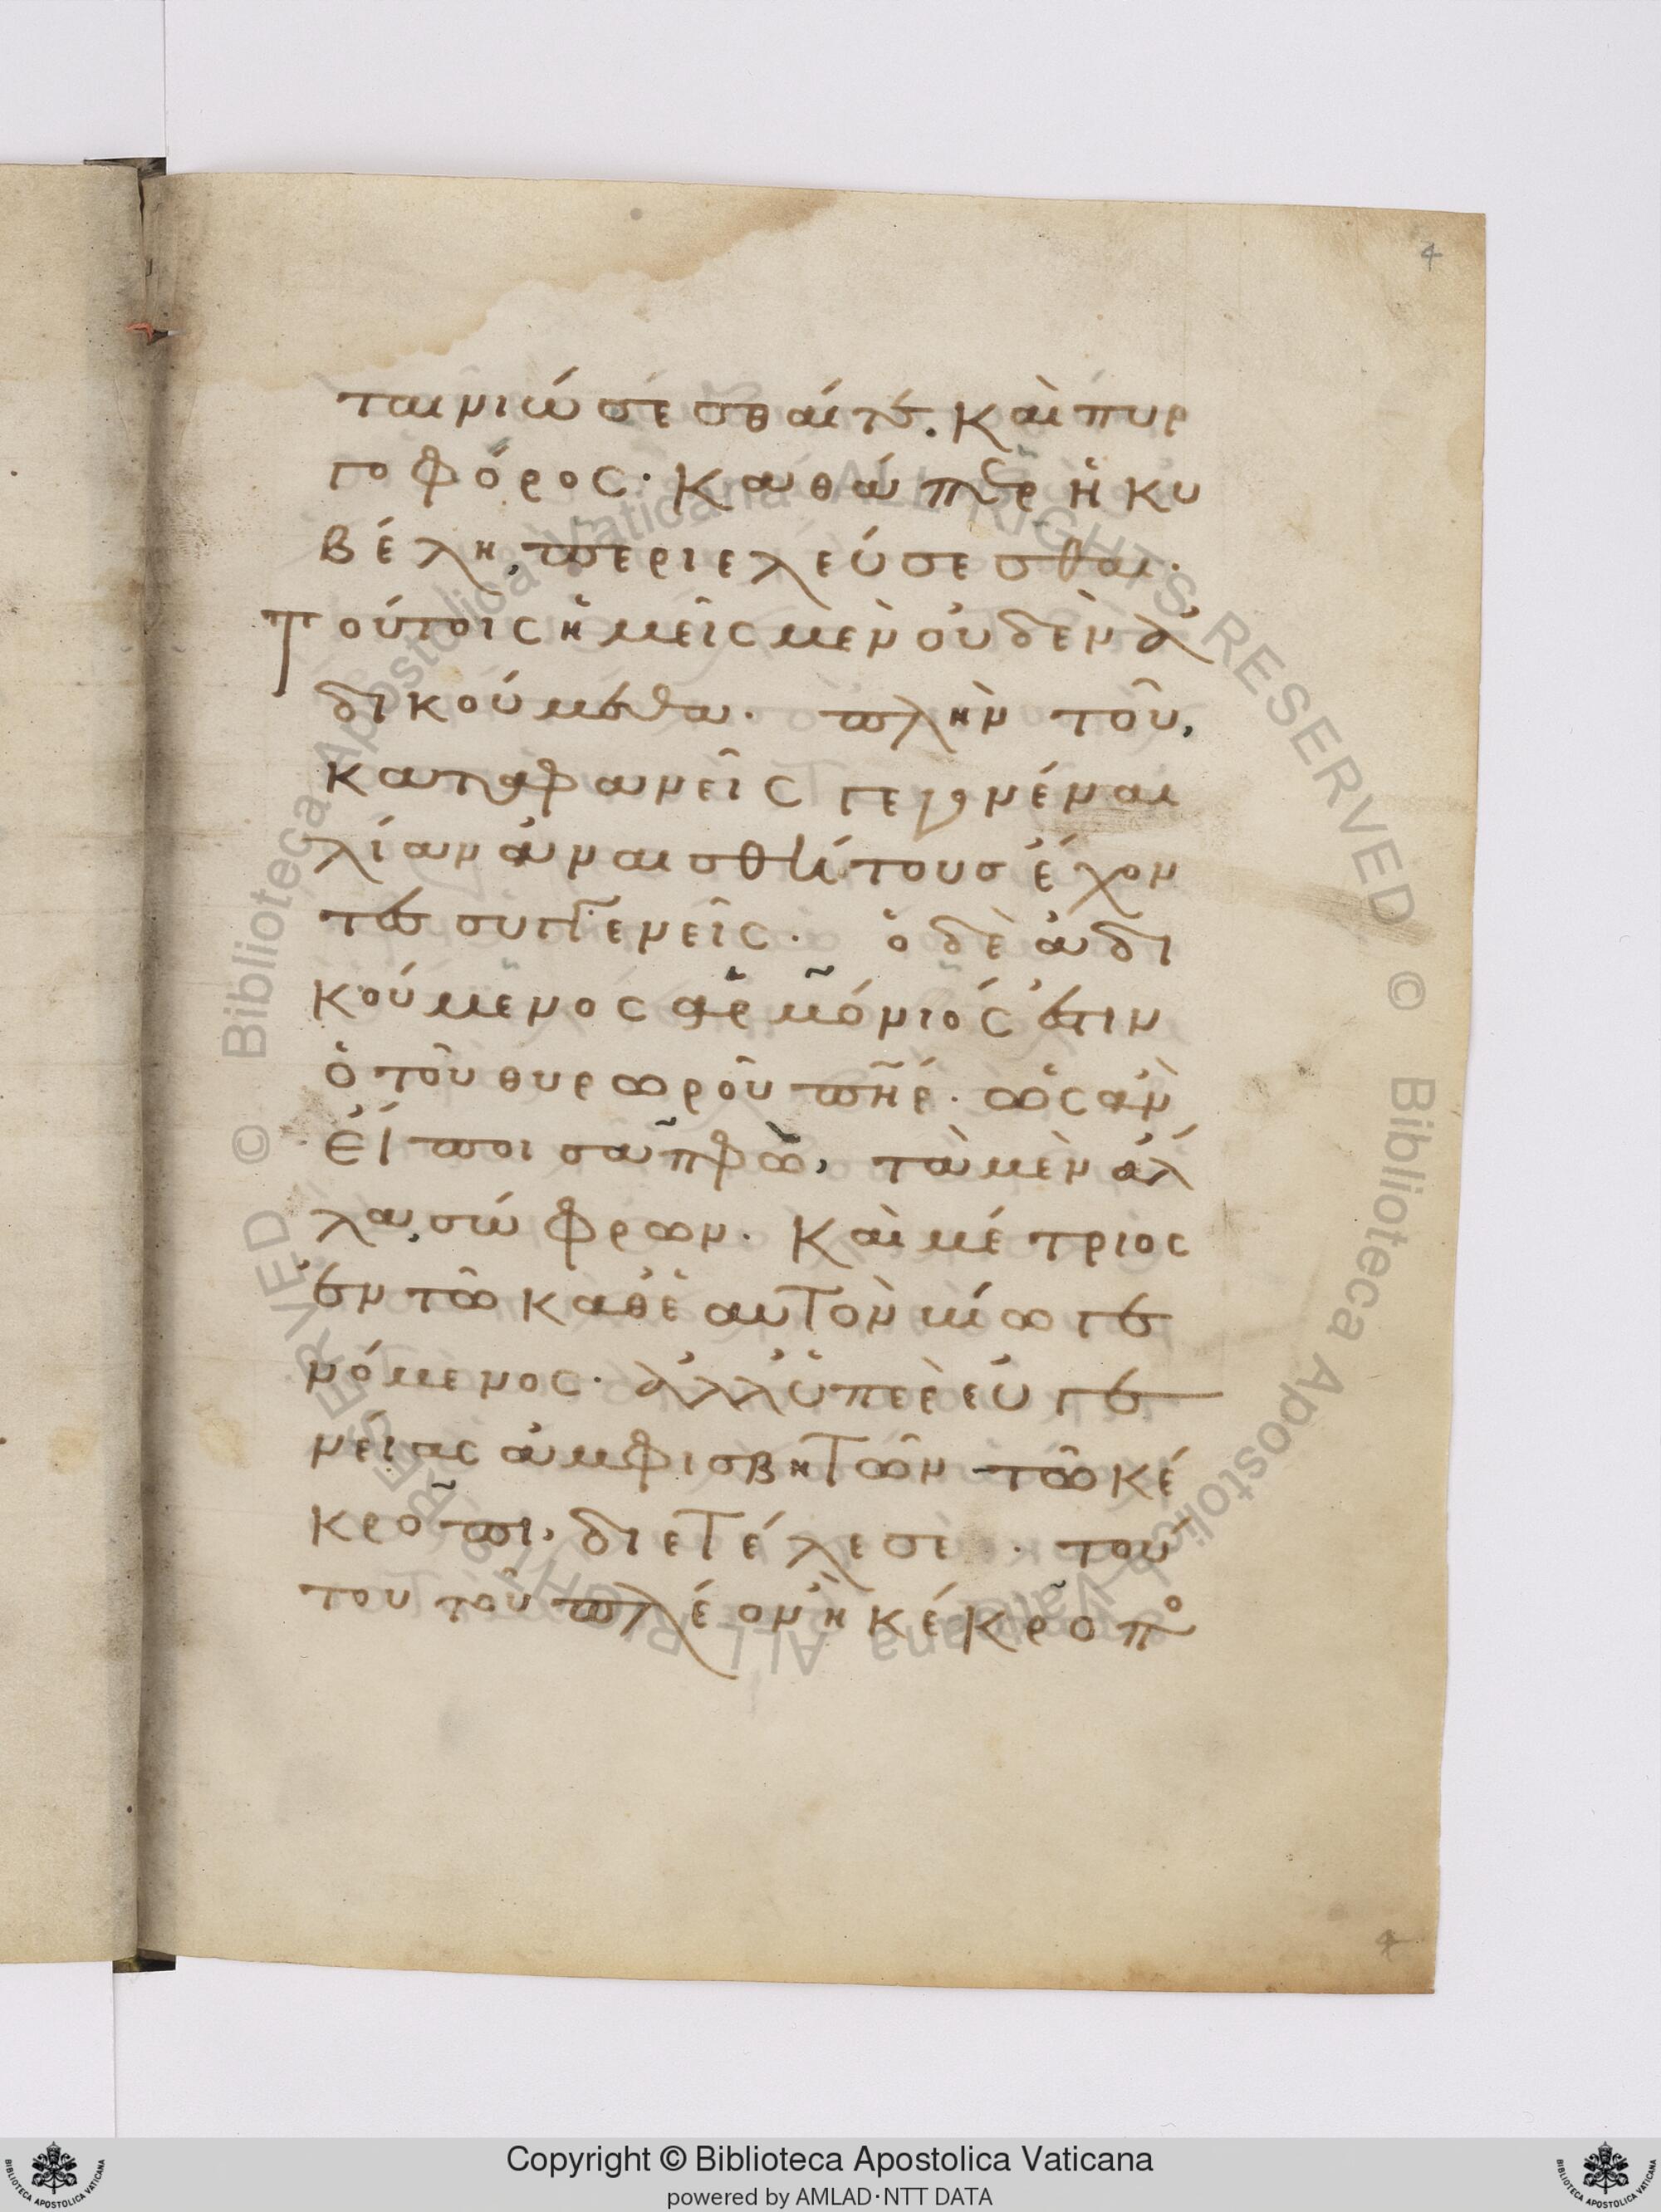 4
ταινιώσεσθαί τε. καὶ πυρ
γοφόρος· καθάπερ ἡ κυ
βέλη, περιελεύσεσθαι·
Τούτοις ἡμεῖς μὲν οὐδὲν ἀ
δικούμεθα· πλὴν τοῦ,
καταφανεῖς γεγονέναι
λίαν ἀναισθήτους ἔχον
τες συγγενεῖς· ὁ δὲ ἀδι
κούμενος ἁρμόνιός ἐστιν
ὁ τοῦ θυρωροῦ πῆρ· ὡς ἂν
εἴποι σαπφὼ, τὰ μὲν ἄλ
λα, σώφρων· καὶ μέτριος
ἐν τῶ καθ' ἑαυτὸν βίω γε
νόμενος· ἀλλ' ὑπὲρ εὐγε
νείας ἀμφισβητῶν τῶ κέ
κροπι, διετέλεσε· τού
του τοῦ πλέον ἢ κέκροπο
4
Biblioteca Apostolica Vaticana ALL RIGHTS RESERVED ©
Biblioteca Apostolica Vaticana ALL RIGHTS RESERVED ©
Copyright © Biblioteca Apostolica Vaticana
powered by AMLAD·NTT DATA
BIBLIOTECA APOSTOLICA VATICANA
BIBLIOTECA APOSTOLICA VATICANA